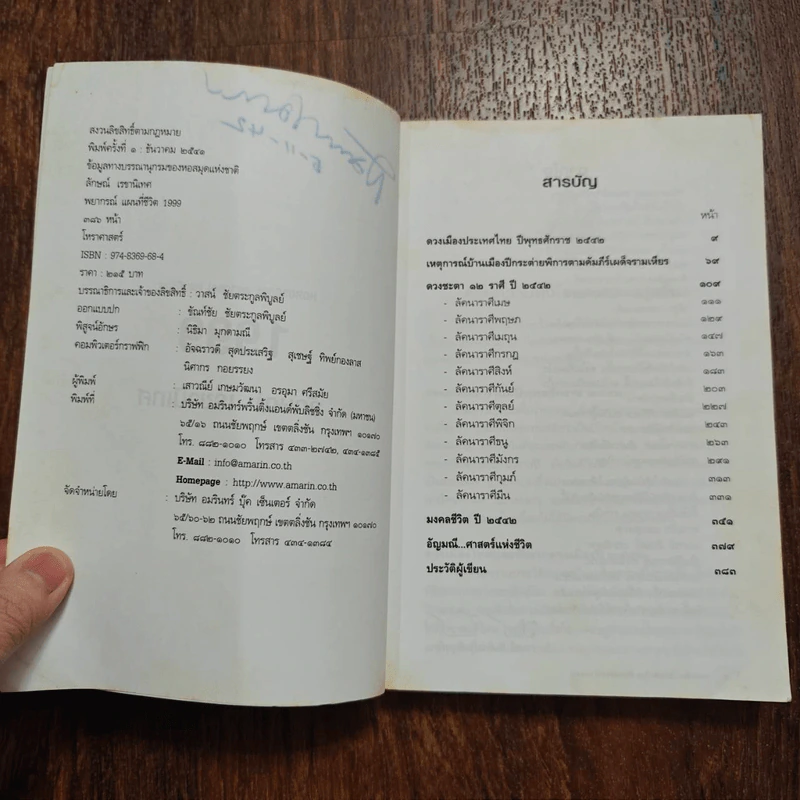 สงวนลิขสิทธิ์ตามกฎหมาย
พิมพ์ครั้งที่ ๑ : ธันวาคม ๒๕๔๑
ข้อมูลทางบรรณานุกรมของหอสมุดแห่งชาติ
ลักษณ์ เรขานิเทศ
พยากรณ์ แผนที่ชีวิต 1999
๓๘๖ หน้า
โหราศาสตร์
ISBN : 974-8369-68-4
ราคา : ๒๑๕ บาท
บรรณาธิการและเจ้าของลิขสิทธิ์ : วาสน์ ชัยตระกูลพิบูลย์
ออกแบบปก : ขัณท์ชัย ชัยตระกูลพิบูลย์
พิสูจน์อักษร : นิธิมา มุกดามณี
คอมพิวเตอร์กราฟฟิก : อัจฉราวดี สุดประเสริฐ สุเชษฐ์ ทิพย์กองลาส
นิศากร กอยรรยง
ผู้พิมพ์ : เสาวณีย์ เกษมวัฒนา อรอุมา ศรีสมัย
พิมพ์ที่ : บริษัท อมรินทร์พริ้นติ้งแอนด์พับลิชชิ่ง จำกัด (มหาชน)
๖๕/๑๖ ถนนชัยพฤกษ์ เขตตลิ่งชัน กรุงเทพฯ ๑๐๑๗๐
โทร. ๘๘๒-๑๐๑๐ โทรสาร ๔๓๓-๒๗๔๒, ๔๓๔-๑๓๘๕
E-Mail : info@amarin.co.th
Homepage : http://www.amarin.co.th
จัดจำหน่ายโดย : บริษัท อมรินทร์ บุ๊ค เซ็นเตอร์ จำกัด
๖๕/๖๐-๖๒ ถนนชัยพฤกษ์ เขตตลิ่งชัน กรุงเทพฯ ๑๐๑๗๐
โทร. ๘๘๒-๑๐๑๐ โทรสาร ๔๓๔-๑๓๘๔
สารบัญ
หน้า
ดวงเมืองประเทศไทย ปีพุทธศักราช ๒๕๔๒ ๙
เหตุการณ์บ้านเมืองปีกระต่ายพิการตามคัมภีร์เผด็จรามเหียร ๖๙
ดวงชะตา ๑๒ ราศี ปี ๒๕๔๒ ๑๐๙
- ลัคนาราศีเมษ ๑๑๑
- ลัคนาราศีพฤษภ ๑๒๙
- ลัคนาราศีเมถุน ๑๔๗
- ลัคนาราศีกรกฎ ๑๖๓
- ลัคนาราศีสิงห์ ๑๘๓
- ลัคนาราศีกันย์ ๒๐๓
- ลัคนาราศีตุลย์ ๒๒๗
- ลัคนาราศีพิจิก ๒๔๓
- ลัคนาราศีธนู ๒๖๓
- ลัคนาราศีมังกร ๒๙๑
- ลัคนาราศีกุมภ์ ๓๑๓
- ลัคนาราศีมีน ๓๓๑
มงคลชีวิต ปี ๒๕๔๒ ๓๕๑
อัญมณี...ศาสตร์แห่งชีวิต ๓๗๙
ประวัติผู้เขียน ๓๘๓